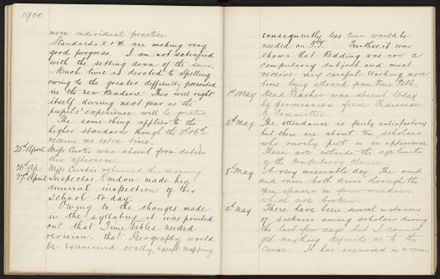 1900
more individual practice.
Standards II & III are making very
good progress. I am not satisfied
with the setting down of the sums.
Much time is devoted to Spelling
owing to the greater difficulty presented
in the new Readers. This will right
itself during next year as the
pupils' experience will be greater.
The same thing applies to the
higher standards though the
receive no extra time.
25th April Miss Curtis was absent from duties
this afternoon.
26th Ap. Miss Curtis returned this morning.
27th April Inspector London made his
annual inspection of this
school to-day.
Owing to the changes made
in the syllabus it was pointed
out that Time Tables needed
revision. That Geography would
be examined orally, except mapping.
consequently less time would be
needed on it. Further it was
shown that Reading was now a
compulsory subject and must
receive very careful teaching more
time being allowed from Time Table.
1st May Head Teacher was absent to-day
by permission from Chairman
of Committee.
4th May The attendance is fairly satisfactory
but there are about ten scholars
who rarely put in an appearance
These are outside the age limits
of the Compulsory Clause.
A very miserable day. The wind
and rain both drive through the
open spaces in four windows
which are broken.
There have been several instances
of sickness among scholars during
the last few days but I cannot
get anything definite as to the
cause. It has occurred in